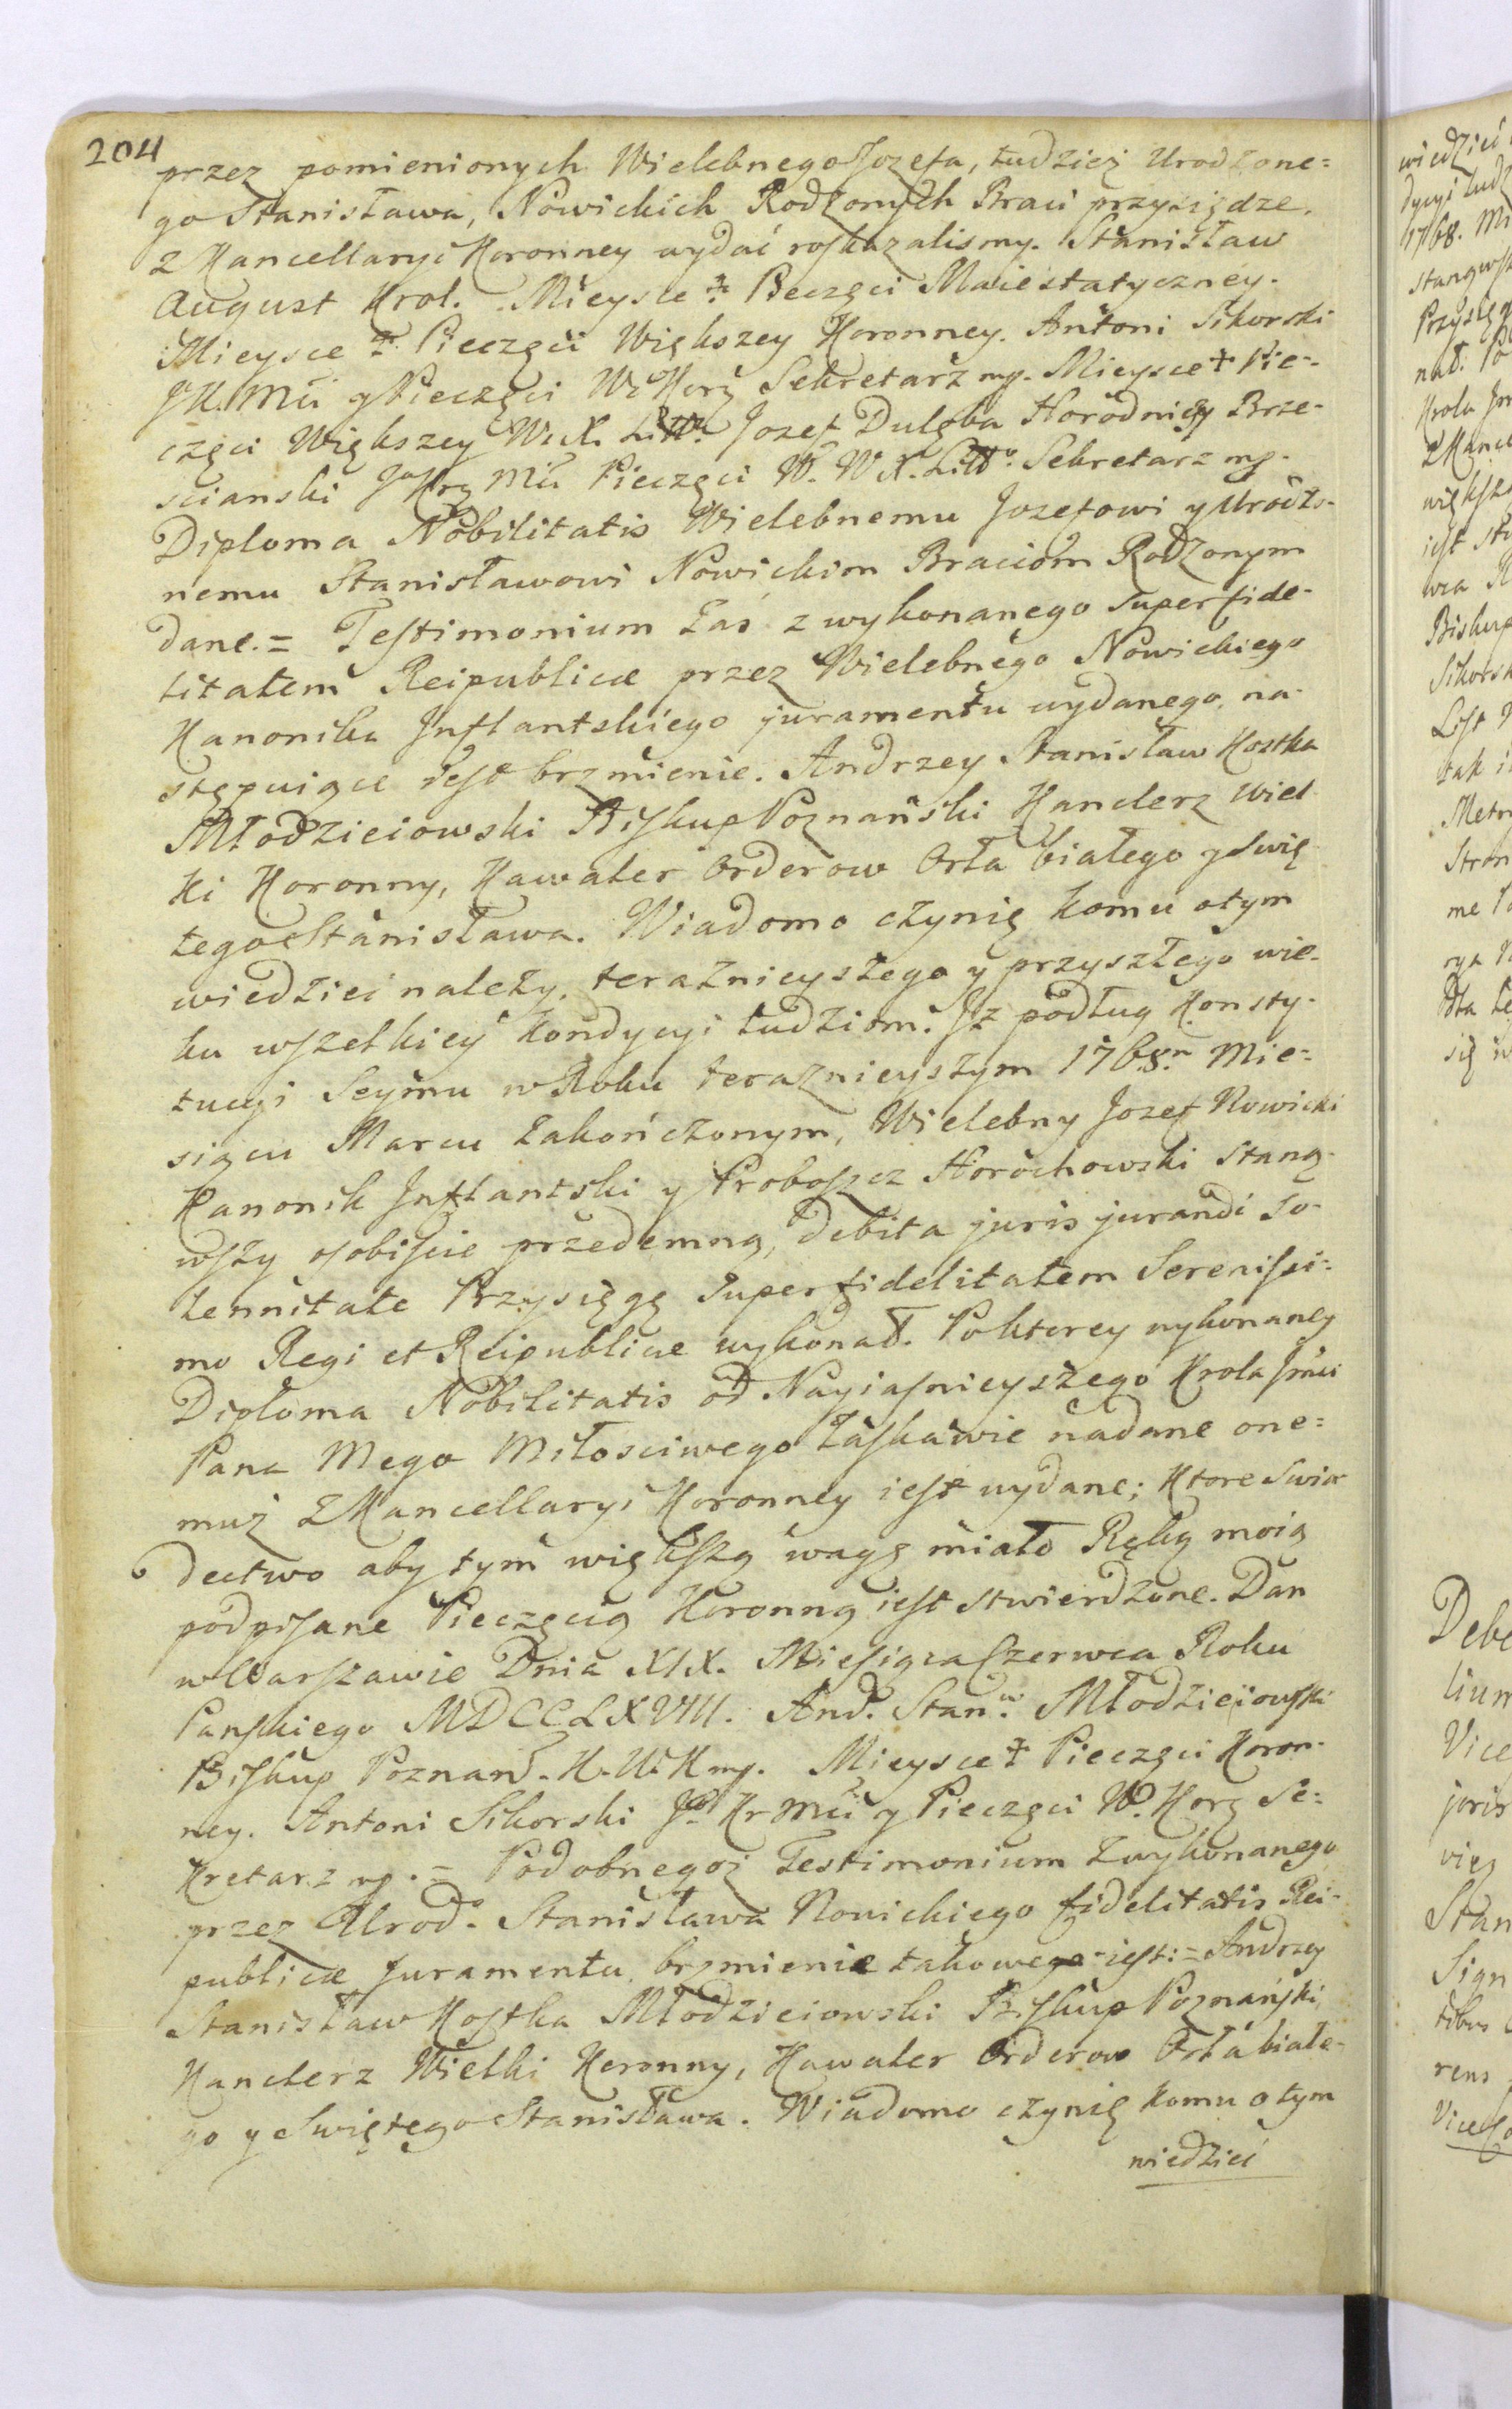 204
przez pomienionych Wielebnego Jozefa, tudzież Urodzone=
go Stanisława, Nowickich Rodzonych Braci przysiędze.
z Kancellaryi Koronney wydać roskazalismy. Stanisław
August Krol. Mieysce ☩ Pieczęci Maiestatyczney.
Mieysce ☩ Pieczęci Większey Koronney. Antoni Sikorski
JK. Mci y Pieczęci W. Kor. Sekretarz mp. Mieysce ☩ Pie-
częci Większey W. X. Litt. Jozef Dulęba Horodniczy Brze-
scianski JoKrs Mci Pieczęci W. W X. Litto. Sekretarz mp.
Diploma Nobilitatis Wielebnemu Jozefowi y Urodzo-
nemu Stanisławowi Nowickim Braciom Rodzonym
dane. = Testimonium Zaś z wykonanego super fide-
litatem Reipublicæ przez Wielebnego Nowickiego
Kanonika Inflantskiego juramentu wydanego, na-
stępuiące iest brzmienie. Andrzey Stanisław Kostka
Młodzieiowski Biskup Poznański Kanclerz Wiel
ki Koronny, Kawaler Orderow Orła białego y Swię
tego Stanisława. Wiadomo czynię komu otym
wiedzieć należy, teraźnieyszego y przyszłego wie-
ku wszelkiey kondycyi ludziom. Jż podług Konsty-
tucyi Seymu w Roku teraznieyszym 1768. Mie=
siącu Marcu zakończonym, Wielebny Jozef Nowicki
Kanonik Inflantski y Proboszcz Horochowski staną-
wszy osobiscie przedemną, debita juris jurandi so-
lennitate Przysięgę super fidelitatem Serenissi=
mo Regi et Reipublicæ wykonał. Po ktorey wykonaney
Diploma Nobilitatis od Nayiasnieyszego Krola Jmci
Pana Mego Miłosciwego łaskawie nadane one=
muż z Kancellaryi Koronney iest wydane; Ktore Swia
dectwo aby tym większą wagę miało Ręką moią
podpisane Pieczęcią Koronną iest stwierdzone. Dan
w Warszawie Dnia XIX. Miesiąca Czerwca Roku
Panskiego MDCCLXVIII. And. Stan. Młodzieiowski
Biskup Poznan. K. W. K mp. Mieysce ☩ Pieczęci Koron-
ney. Antoni Sikorski Jo Kr Mci y Pieczęci W. Kor. Se=
kretarz mp. = Podobnegoż Testimonium Zwykonanego
przez Urod. Stanisława Nowickiego fidelitatis Rei-
publicæ Juramentu, brzmienie takowe iest: = Andrzey
Stanisław Kostka Młodzieiowski Biskup Poznański
Kanclerz Wielki Koronny, Kawaler Orderow Orła białe-
go y Swiętego Stanisława. Wiadomo czynię komu o tym
wiedzieć